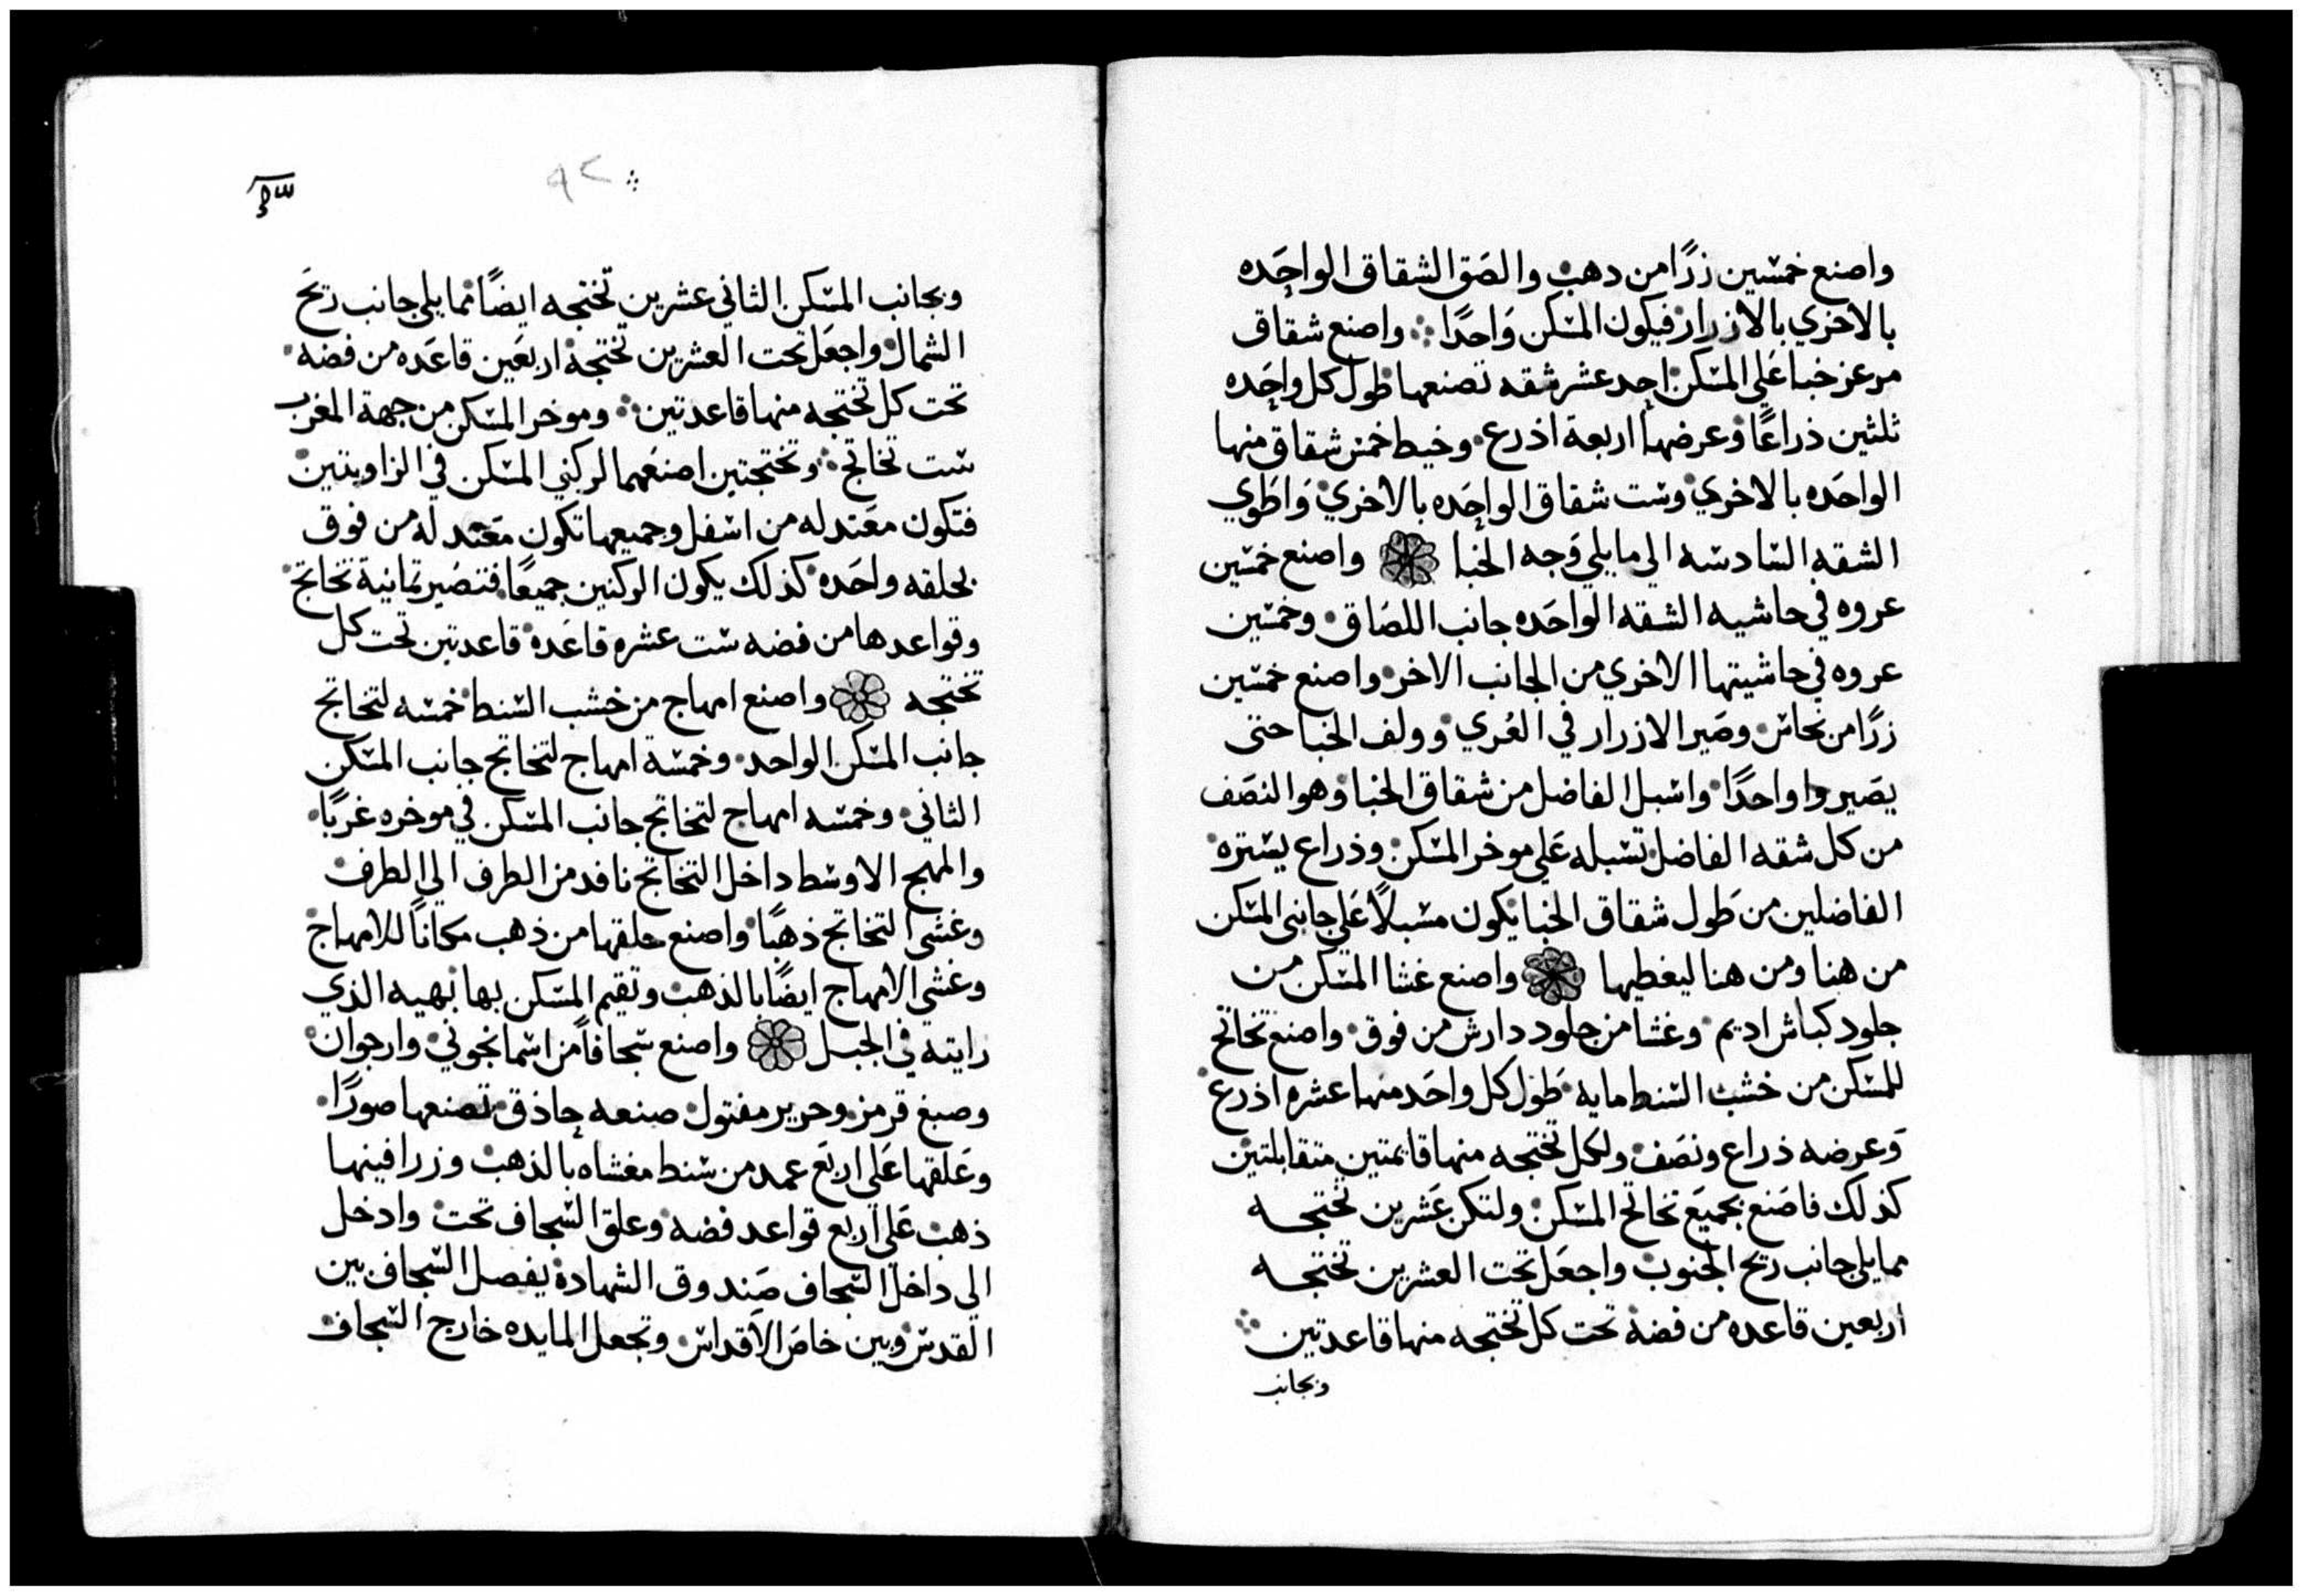 واصنع خمسين زرًا من دهب والصق الشقاق الواحده
بالاخري بالازرار فيكون المسكن واحدًا واصنع شقاق
مرعز خبا علي المسكن احد عشر شقه تصنعها طول كل واحده
ثلثين ذراعًا وعرضها اربعة اذرع وخيط خمس شقاق منها
الواحده بالاخري وست شقاق الواحده بالاخري واطوي
الشقه السادسه الي ما يلي وجه الخبا واصنع خمسين
عروه في حاشيه الشقه الواحده جانب اللصاق وخمسين
عروه في حاشيتها الاخري من الجانب الاخر واصنع خمسين
زرًا من نحاس وصير الازرار في العُري وولف الخبا حتى
يصير واواحدًا واسبل الفاضل من شقاق الخبا وهو النصف
من كل شقه الفاضل تسبله علي موخر المسكن وذراع يستره
الفاضلين من طول شقاق الخبا يكون مسبلاً علي جانبى المسكن
من هنا ومن هنا ليغطيها واصنع غشا المسكن من
جلود كباش اديم وغشا من جلود دارش من فوق واصنع تخاتج
للمسكن من خشب السنط مايه طول كل واحد منها عشره اذرع
وعرضه ذراع ونصف ولكل تختجه منها قايمتين متقابلتين
كذلك فاصنع بجميع تخاتج المسكن ولتكن عشرين تختجه
مما يلي جانب ريح الجنوب واجعل تحت العشرين تختجه
اربعين قاعده من فضة تحت كل تختجه منها قاعدتين
وبجانب
٩٢
وبجانب المسكن الثاني عشرين تختجه ايضًا مما يلي جانب ريح
الشمال واجعل تحت العشرين تختجة اربعين قاعده من فضه
تحت كل تختجه منها قاعدتين وموخر المسكن من جهة المغرب
ست تخاتج وتختجتين اصنعهما لركني المسكن في الزاويتين
فتكون معتدله من اسفل وجميعها تكون معتدله من فوق
بحلقه واحده كذلك يكون الركنين جميعًا فتصير ثمانية تخاتج
وقواعدها من فضه ست عشره قاعده قاعدتين تحت كل
تختجه واصنع امهاج من خشب السنط خمسه لتخاتج
جانب المسكن الواحد وخمسة امهاج لتخاتج جانب المسكن
الثاني وخمسه امهاج لتخاتج جانب المسكن في موخره غربًا
والمهج الاوسط داخل التخاتج نافد من الطرف الي الطرف
وغشي التخاتج ذهبًا واصنع حلقها من ذهب مكانًا للامهاج
وغشي الامهاج ايضًا بالذهب وتقيم المسكن بها بهيه الذي
رايته في الجبل واصنع سجافاً من اسمانجوني وارجوان
وصبغ قرمز وحرير مفتول صنعه حاذق تصنعها صورًا
وعلقها علي اربع عمد من سنط مغشاه بالذهب وزرافينها
ذهب علي اربع قواعد فضه وعلق السجاف تحت وادخل
الي داخل السجاف صندوق الشهادة يفصل السجاف بين
القدس وبين خاص الاقداس وتجعل المايده خارج السجاف